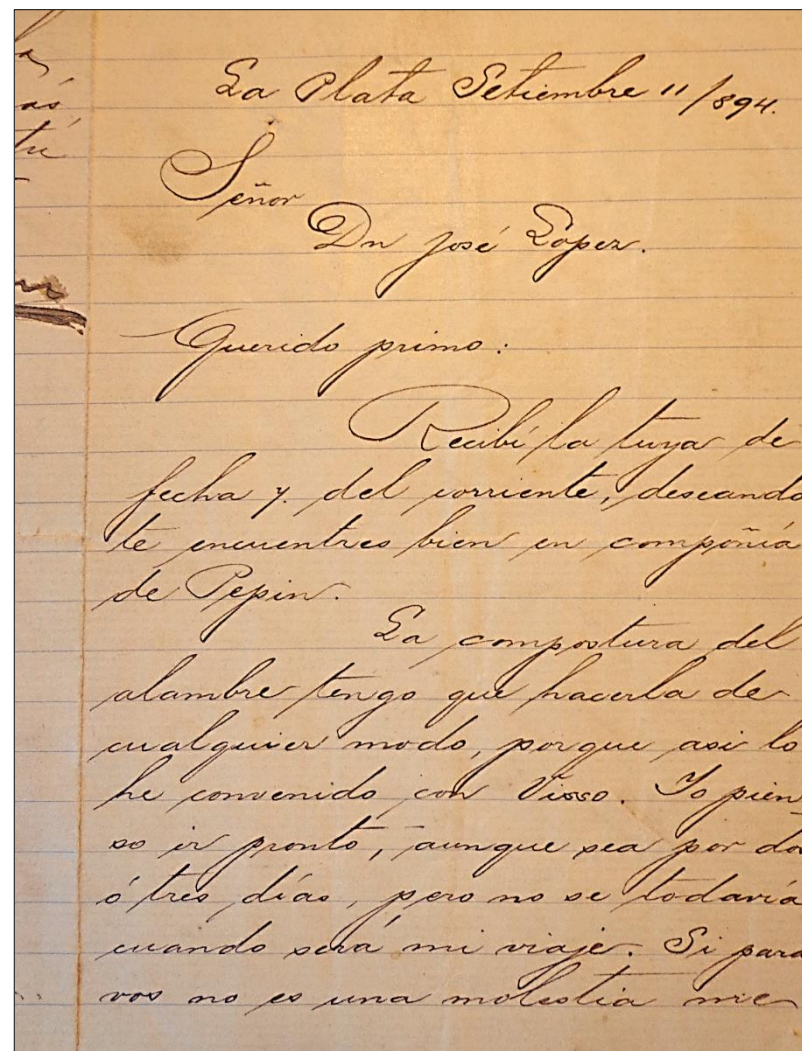 La Plata Setiembre 11/894.
Señor
Dn José López.
Querido primo:
Recibí la tuya de
fecha 7. del corriente, deseando
te encuentres bien en compañía
de Pepin.
La compostura del
alambre tengo que hacerla de
cualquier modo, porque asi lo
he convenido con Visso. Yo pien
so ir pronto, aunque sea por dos
ó tres días, pero no se todavía
cuando será mi viaje. Si para
vos no es una molestia me